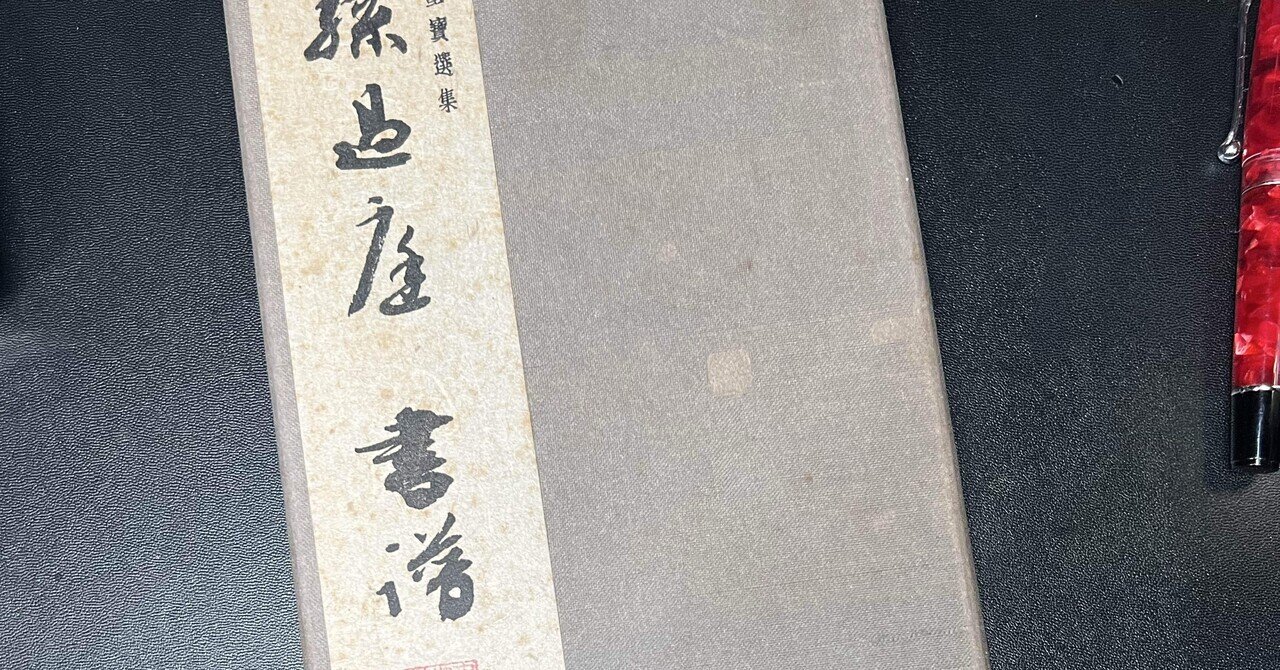 寶選集
孫過庭 書譜